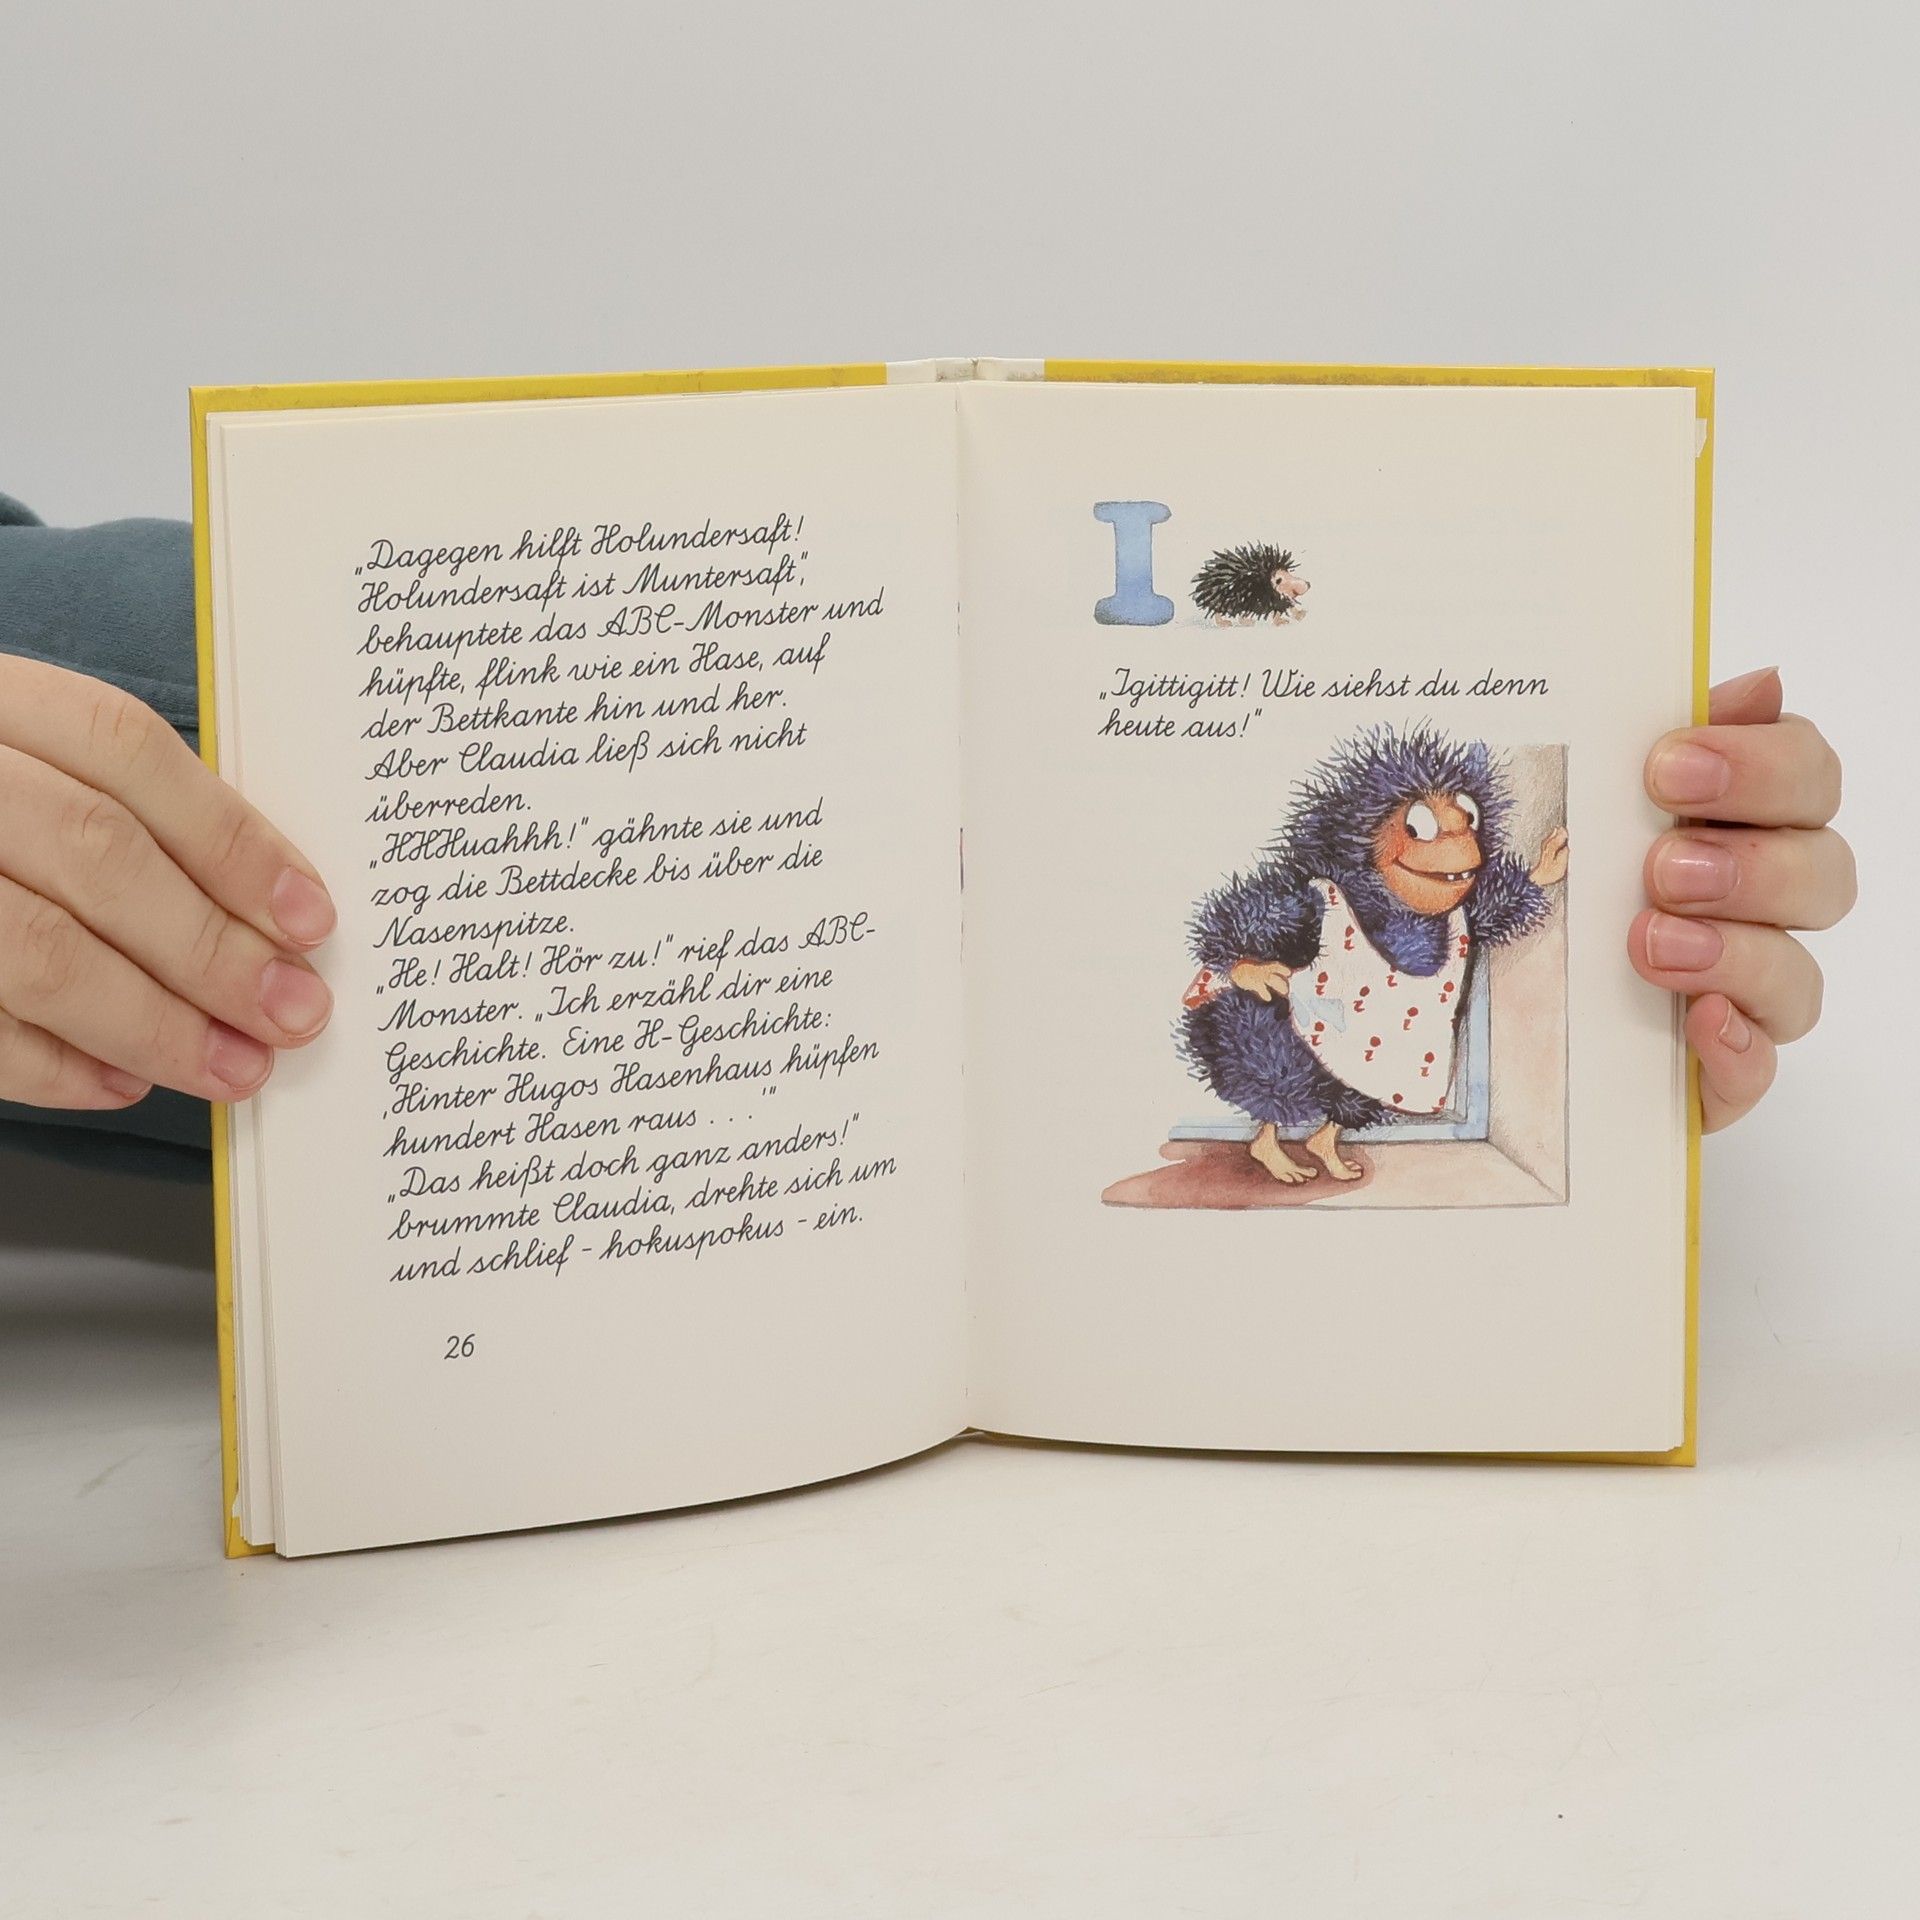 „Dagegen hilft Holundersaft!
Holundersaft ist Muntersaft",
behauptete das ABC-Monster und
hüpfte, flink wie ein Hase, auf
der Bettkante hin und her.
Aber Claudia ließ sich nicht
überreden.
„HHHuahhh!" gähnte sie und
zog die Bettdecke bis über die
Nasenspitze.
„He! Halt! Hör zu!" rief das ABC-
Monster. „Ich erzähl dir eine
Geschichte. Eine H-Geschichte:
‚Hinter Hugos Hasenhaus hüpfen
hundert Hasen raus . . .'"
„Das heißt doch ganz anders!"
brummte Claudia, drehte sich um
und schlief - hokuspokus - ein.
26
I
„Igittigitt! Wie siehst du denn
heute aus!"